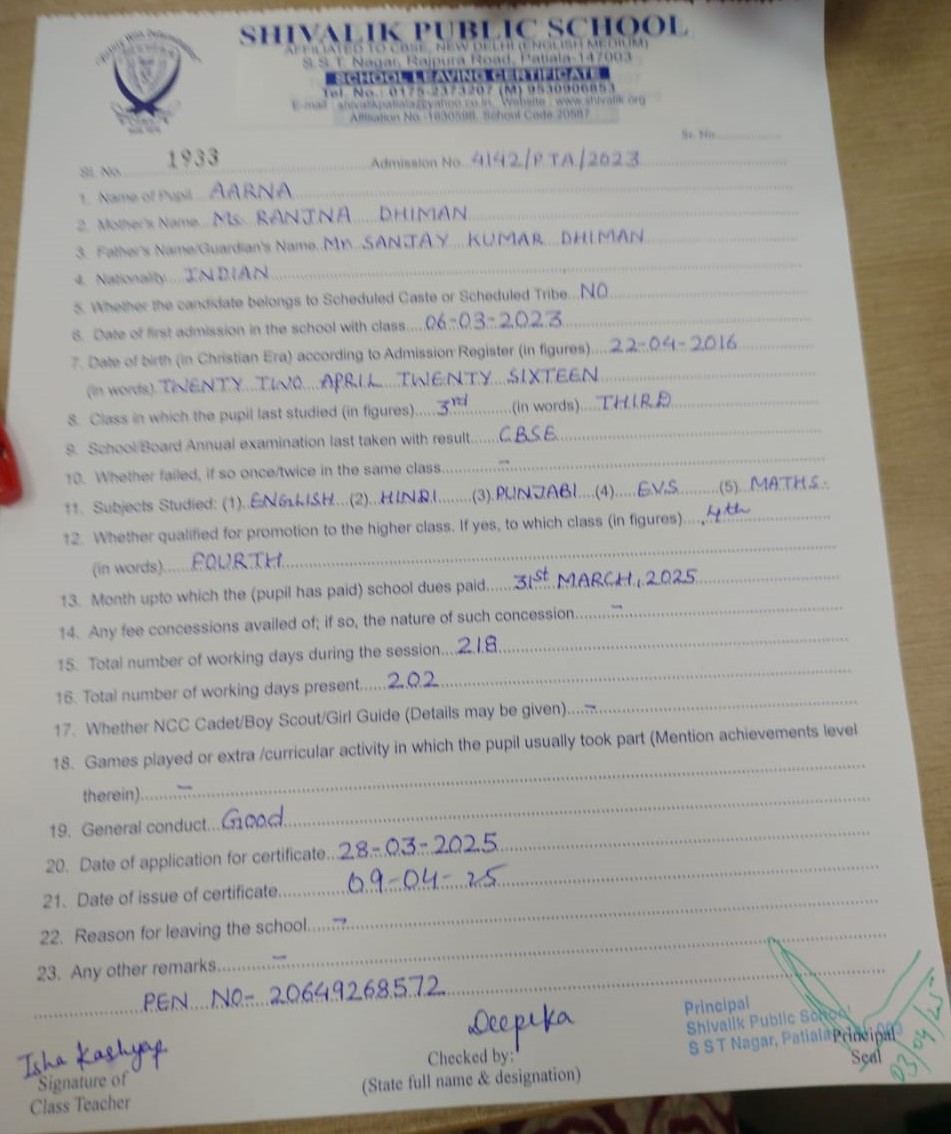 SHIVALIK PUBLIC SCHOOL
AFFILIATED TO CBSE, NEW DELHI (ENGLISH MEDIUM)
S.S.T. Nagar, Rajpura Road, Patiala-147003
SCHOOL LEAVING CERTIFICATE
Tel. No.: 0175-2373207 (M) 9530906853
E-mail : shivalikpatiala@yahoo.co.in, Website : www.shivalik.org
Affiliation No.-1630598, School Code 20587
Sr. No.
Sl. No. 1933 Admission No. 4142/PTA/2023
1. Name of Pupil AARNA
2. Mother's Name Ms. RANJNA DHIMAN
3. Father's Name/Guardian's Name Mr. SANJAY KUMAR DHIMAN
4. Nationality INDIAN
5. Whether the candidate belongs to Scheduled Caste or Scheduled Tribe NO
6. Date of first admission in the school with class 06-03-2023
7. Date of birth (in Christian Era) according to Admission Register (in figures) 22-04-2016
(in words) TWENTY TWO APRIL TWENTY SIXTEEN
8. Class in which the pupil last studied (in figures) 3rd (in words) THIRD
9. School/Board Annual examination last taken with result CBSE
10. Whether failed, if so once/twice in the same class –
11. Subjects Studied: (1) ENGLISH (2) HINDI (3) PUNJABI (4) EVS (5) MATHS.
12. Whether qualified for promotion to the higher class. If yes, to which class (in figures) 4th
(in words) FOURTH
13. Month upto which the (pupil has paid) school dues paid 31st MARCH, 2025
14. Any fee concessions availed of; if so, the nature of such concession –
15. Total number of working days during the session 218
16. Total number of working days present 202
17. Whether NCC Cadet/Boy Scout/Girl Guide (Details may be given) –
18. Games played or extra /curricular activity in which the pupil usually took part (Mention achievements level
therein) –
19. General conduct Good
20. Date of application for certificate 28-03-2025
21. Date of issue of certificate 09-04-25
22. Reason for leaving the school –
23. Any other remarks –
PEN NO- 20649268572
Isha Kashyap
Signature of
Class Teacher
Deepika
Checked by:
(State full name & designation)
Principal
Shivalik Public School
S S T Nagar, Patiala
Principal
Seal